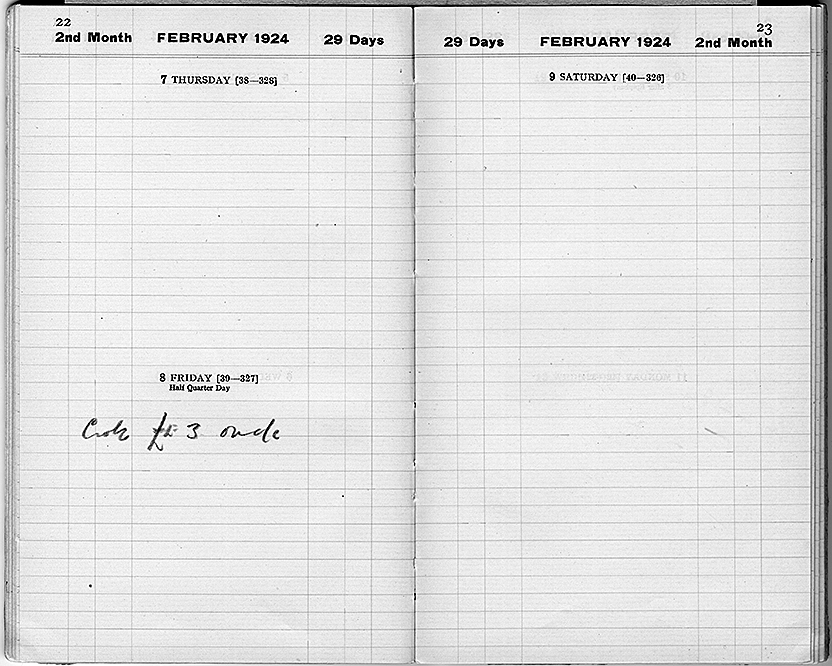 22
2nd Month FEBRUARY 1924 29 Days
7 THURSDAY [38—328]
8 FRIDAY [39—327]
Half Quarter Day
£ 3
23
29 Days FEBRUARY 1924 2nd Month
9 SATURDAY [40—326]